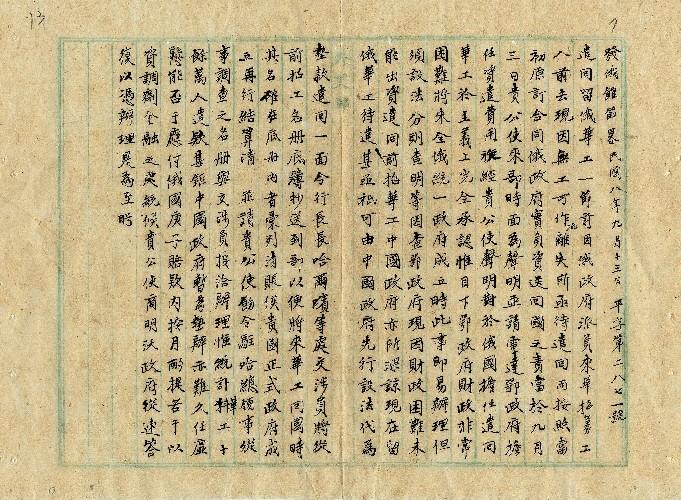 發俄館節署民國八年九月十三日 平字第二八七一號
遣回留俄華工一節前因俄政府派員來華招募工
人前去現因無工可作流離失所亟待遣回而按照當
初原訂合同俄政府實負資送回國之責當於九月
三日貴公使來部時面為聲明並請電達鄂政府擔
任資遣費用旋經貴公使聲明對於俄國擔任遣回
華工於主義上完全承認惟目下鄂政府財政非常
困難將來全俄統一政府成立時此事即易辦理但
須設法分期查明等因查鄂政府現因財政困難未
能出資遣回前招華工中國政府亦所深諒現在留
俄華工待遣甚亟祇可由中國政府先行設法代為
墊款遣回一面令行長長哈爾濱等處交涉員將從
前招工名冊底簿抄送到部以便將來華工回國時
其名確在底冊內者彙列清賬俟貴國正式政府成
立再行結算清 並請貴公使勸令駐哈總領事從
事調查之名冊與交涉員接洽辦理惟統計華工十
餘萬人遣款甚鉅中國政府暫為墊辦亦難久任虛
懸能否于應付俄國庚子賠款內按月酌撥若干以
資調劑金融之處統候貴公使商明沃政府從速答
復以憑辦理是為至盼